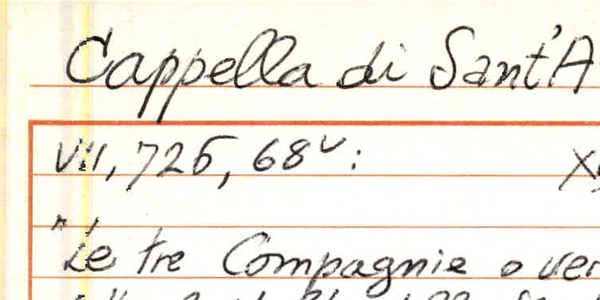 Cappella di Sant'A
VII, 726, 68v:
"Le tre Compagnie o ver